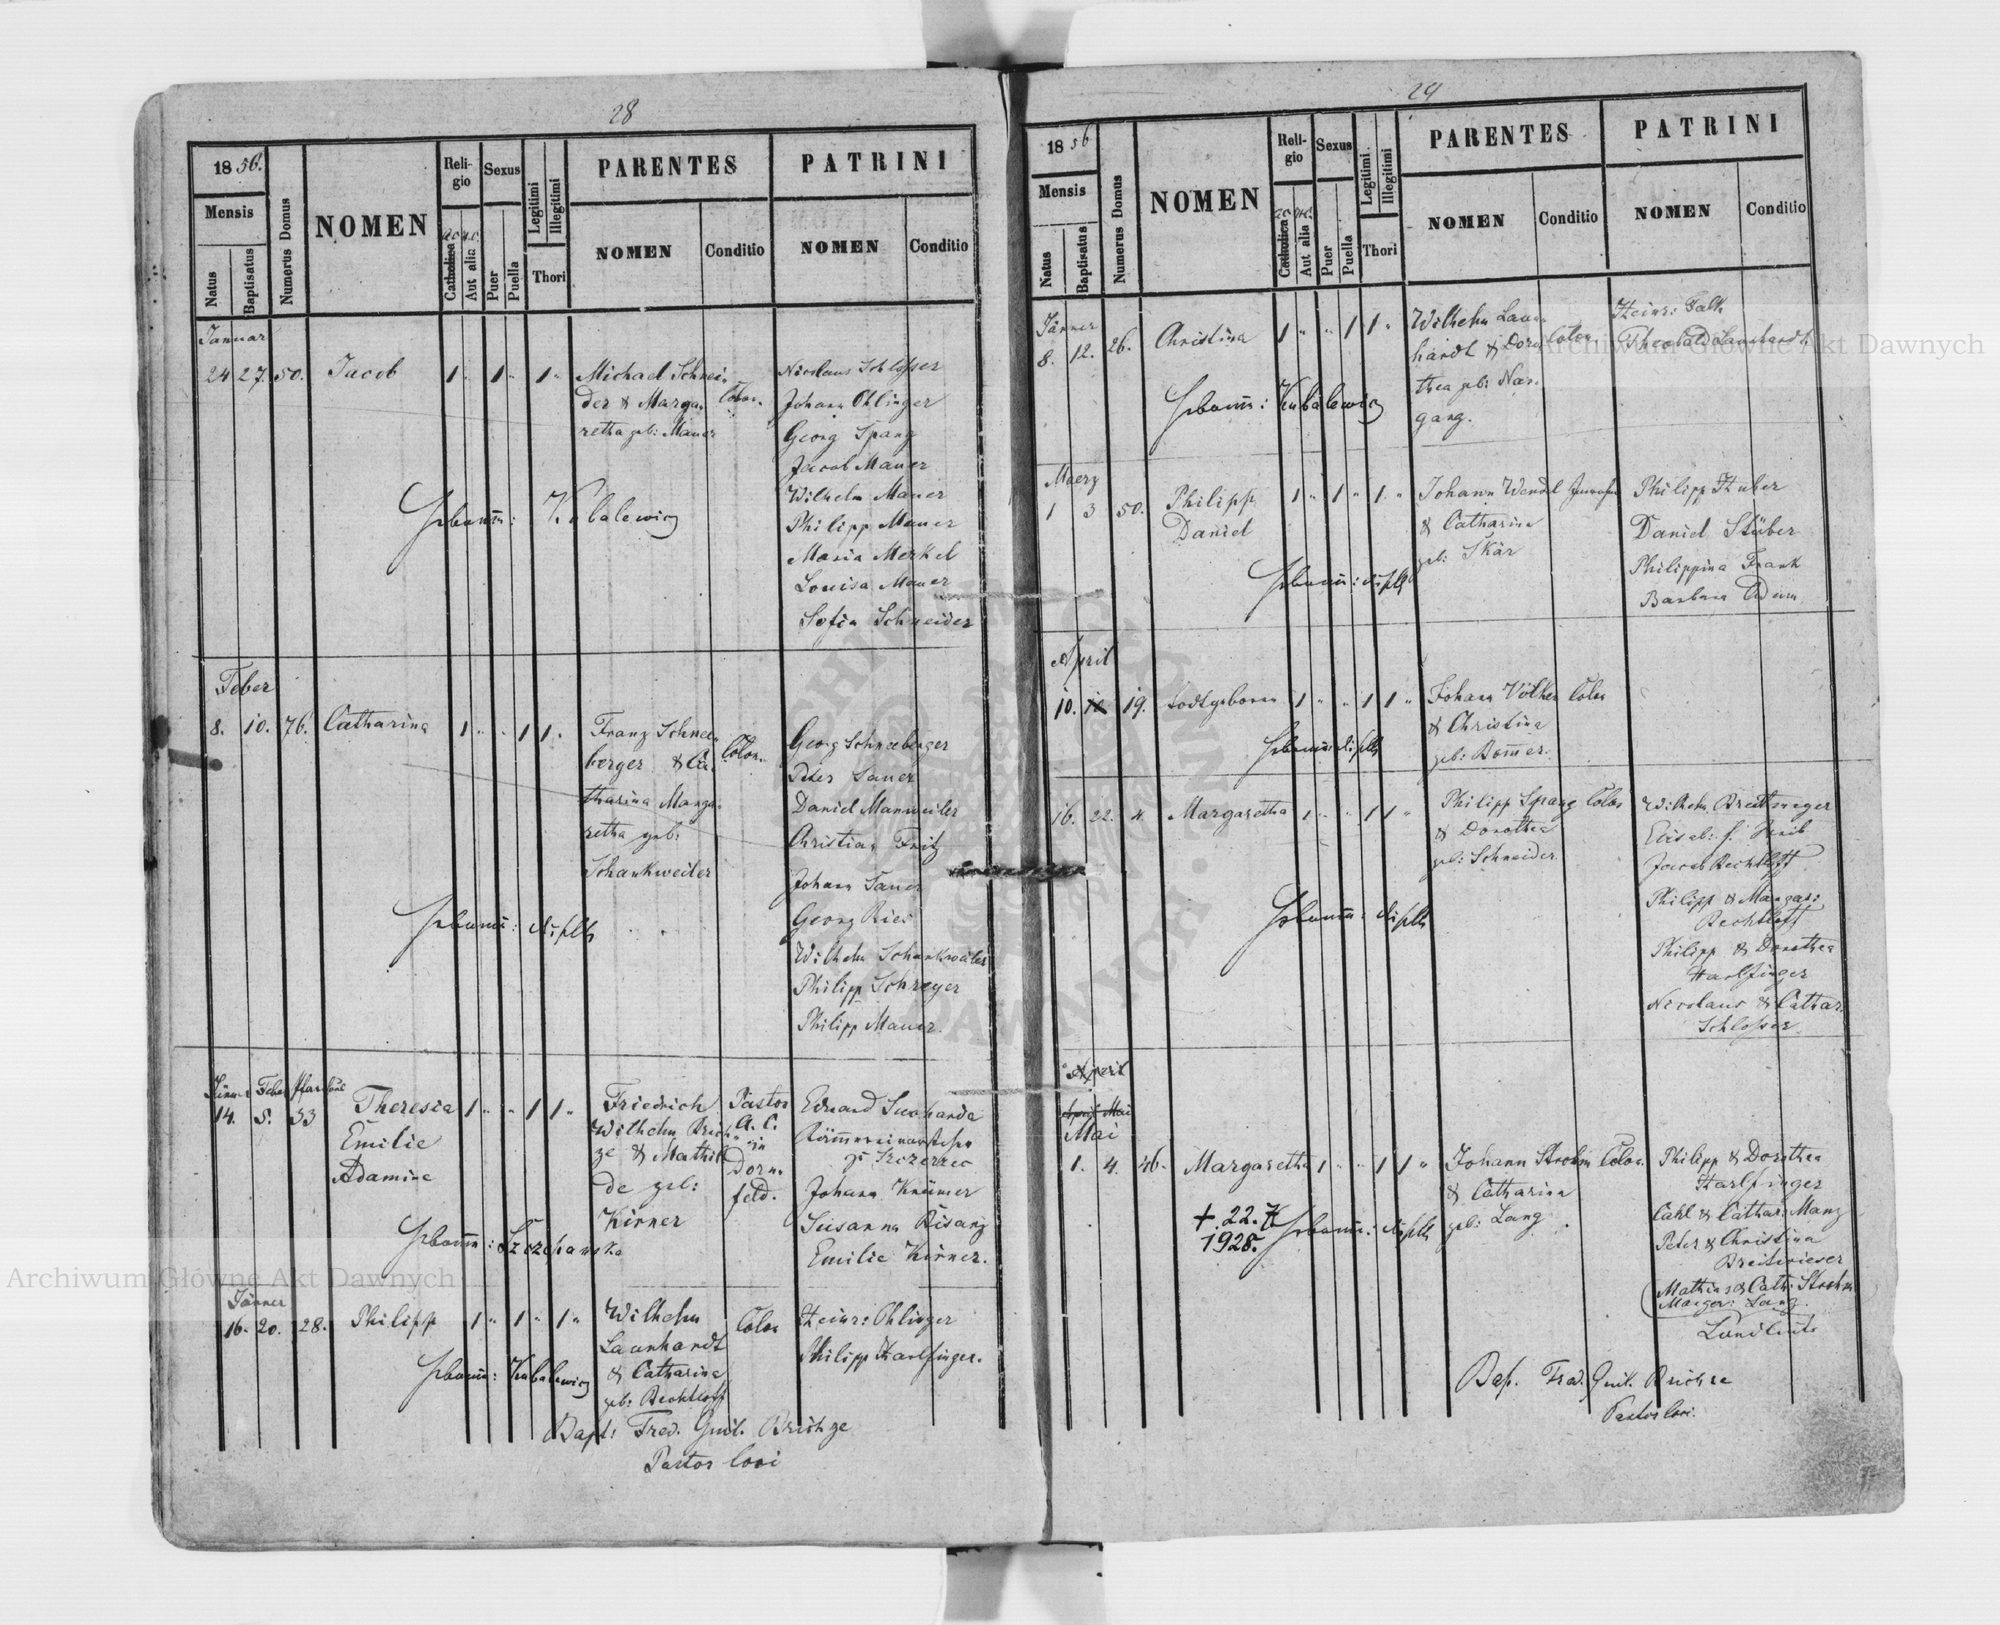 28
1856.
Mensis
Natus
Baptisatus
Numerus Domus
NOMEN
Religio
Catholica
Aut alia
Sexus
Puer
Puella
Legitimi
Illegitimi
Thori
PARENTES
NOMEN
Conditio
PATRINI
NOMEN
Conditio
Januar
24 27. 50. Jacob 1 " 1 " 1 " Michael Schnei- Nicolaus Schlosser
der & Marga- Colon. Johann Ohlinger
retha geb: Mauer Georg Spang
Jacob Mauer
Wilhelm Mauer
Hebamm: Kubalewicz
Philipp Mauer
Maria Merkel
Louisa Mauer
Sofia Schneider
Feber
8. 10. 76. Catharina 1 " " 1 1 " Franz Schnee- Georg Schneeberger
berger & Ca- Colon. Peter Sauer
tharina Marga- Daniel Manweiler
retha geb: Christian Fritz
Schankweiler Johann Sauer
Hebamm: dieselbe Georg Ries
Wilhelm Schankweiler
Philipp Schreyer
Philipp Mauer.
Jänner Feber Pfarrhaus
14. 5. 33 Theresia 1 " " 1 1 " Friedrich Pastor Eduard
Emilie Wilhelm Brich- A. C.
ze & Mathil- in zu Szczerzec
Adamine de geb: Dorn- Johann Krämer
Kirner feld. Susanna Bisanz
Hebamm: Szczepanska Emilie Kirner.
Jänner
16. 20. 28. Philipp 1 " 1 " 1 " Wilhelm Colon Heinr: Ohlinger
Launhardt Philipp Harlfinger.
Hebamm: Kubalewicz & Catharina
geb: Bechtloff
Bapt: Fred. Guil. Brichze
Pastor loci
29
1856
Mensis
Natus
Baptisatus
Numerus Domus
NOMEN
Religio
Catholica
Aut alia
Sexus
Puer
Puella
Legitimi
Illegitimi
Thori
PARENTES
NOMEN
Conditio
PATRINI
NOMEN
Conditio
Jänner
8. 12. 26. Christina 1 " " 1 1 " Wilhelm Laun- Heinr: Falk
hardt & Doro- Colon Theobald Launhardt
thea geb: Nar-
Hebamm: Kubalewicz gang.
Maerz
1 3 50. Philipp 1 " 1 " 1. " Johann Wendel Philipp Huber
Daniel & Catharina Daniel Stüber
geb: Skär Philippina Frank
Hebamm: dieselbe Barbara Adam
April
10. 19. todtgeboren 1 " " 1 1 " Johann Völker Colon
& Christina
Hebamm: dieselbe geb: Bommer.
16. 22. 4. Margaretha 1 " " 1 1 " Philipp Spang Colon Wilhelm Breitwieser
& Dorothea Elisab:
geb: Schneider. Jacob Bechtloff
Hebamm: dieselbe Philipp & Margar:
Bechtloff
Philipp & Dorothea
Harlfinger
Nicolaus & Cathar.
Schlosser
April
April Mai
Mai
1. 4. 46. Margaretha 1 " " 1 1 " Johann Strohm Colon. Philipp & Dorothea
& Catharina Harlfinger
+ 22. 7 geb: Lang Cathar: Manz
1928. Hebamm: dieselbe Peter & Christina
Breitwieser
Mathias & Cath: Strohm
Margar: Lang.
Landleute
Bap. Fred. Guil. Brichze
Pastor loci.
Archiwum Główne Akt Dawnych
Archiwum Główne Akt Dawnych